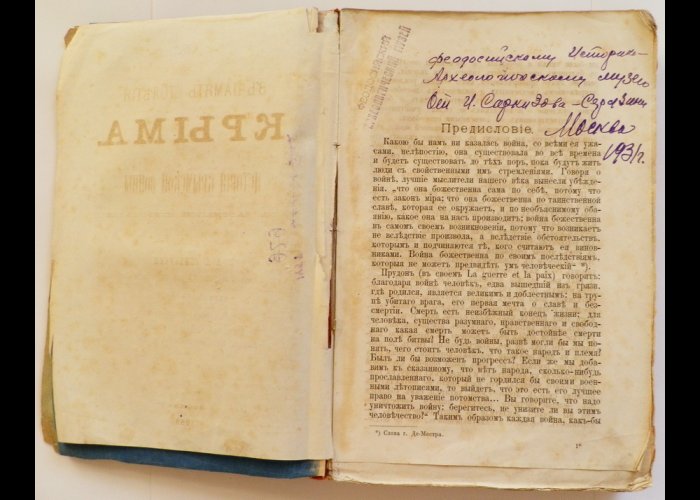 КРЫМА
Феодосийскому Историко-
Археологическому музею
От И. Саркизова-Серазини
Москва
1931г.
Предисловіе.
Какою бы намъ ни казалась война, со всѣми ея ужа-
сами, нелѣпостію, она существовала во всѣ времена
и будетъ существовать до тѣхъ поръ, пока будутъ жить
люди съ свойственными имъ стремленіями. Говоря о
войнѣ, лучшіе мыслители нашего вѣка вынесли убѣжде-
нія, „что она божественна сама по себѣ, потому что
есть законъ міра; что она божественна по таинственной
славѣ, которая ее окружаетъ, и по необъяснимому оба-
янію, какое она на насъ производитъ; война божественна
въ самомъ своемъ возникновеніи, потому что возникаетъ
не вслѣдствіе произвола, а вслѣдствіе обстоятельствъ,
которымъ и подчиняются тѣ, кого считаютъ ея винов-
никами. Война божественна по своимъ послѣдствіямъ,
которыя не можетъ предвидѣть умъ человѣческій“ *).
Прудонъ (въ своемъ La guerre et la paix) говоритъ:
благодаря войнѣ человѣкъ, едва вышедшій изъ грязи,
гдѣ родился, является великимъ и доблестнымъ; на тру-
пѣ убитаго врага, его первая мечта о славѣ и без-
смертіи. Смерть есть неизбѣжный конецъ жизни; для
человѣка, существа разумнаго, нравственнаго и свобод-
наго какая смерть можетъ быть достойнѣе смерти
на полѣ битвы! Не будь войны, развѣ могли бы мы по-
нять, чего стоитъ человѣкъ, что такое народъ и племя?
Былъ ли бы возможенъ прогрессъ? Если же мы доба-
вимъ къ сказанному, что нѣтъ народа, сколько-нибудь
прославленнаго, который не гордился бы своими воен-
ными лѣтописями, то выйдетъ, что это есть его лучшее
право на уваженіе потомства... Вы говорите, что надо
уничтожить войну; берегитесь, не унизите ли вы этимъ
человѣчество?“ Такимъ образомъ каждая война, какъ-бы
*) Слова г. Де-Местра.
1*